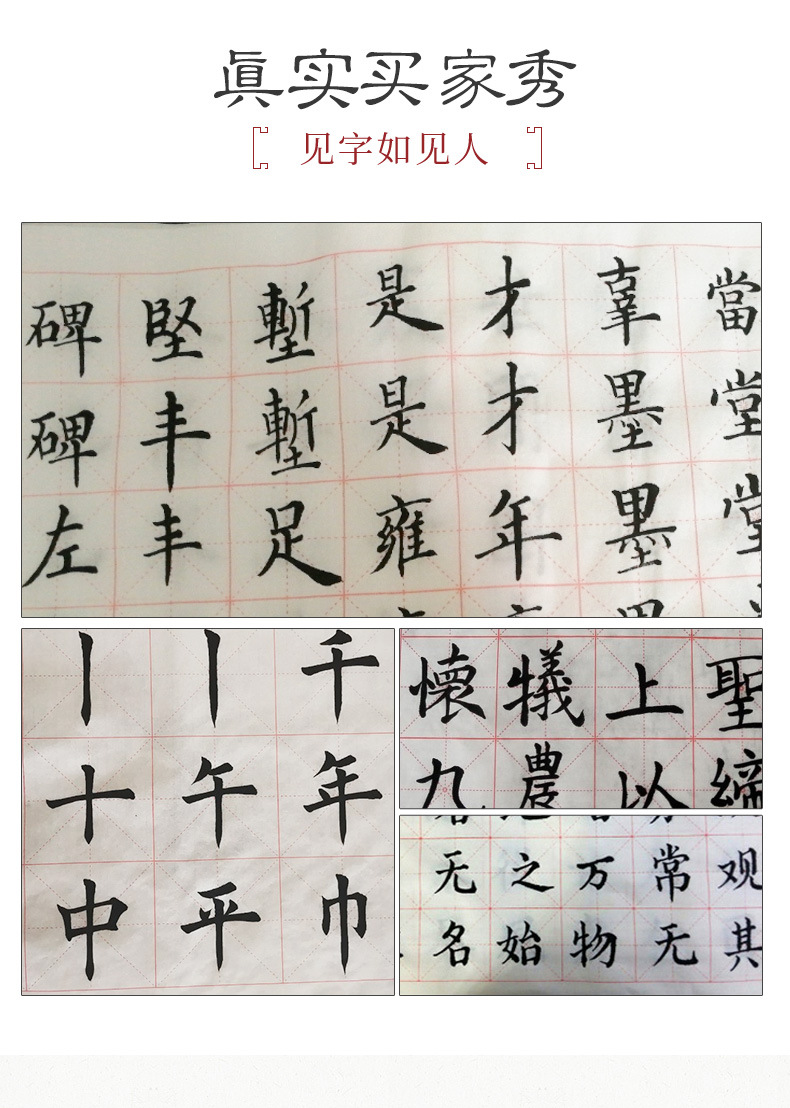 眞实买家秀
见字如见人
碑 堅 塹 是 才 辜 當
碑 丰 塹 是 才 墨 堂
左 丰 足 雍 年 墨 堂
丨 丨 千
十 午 年
中 平 巾
懷 犧 上 聖
九 農 以 締
无 之 万 常 观
名 始 物 无 其